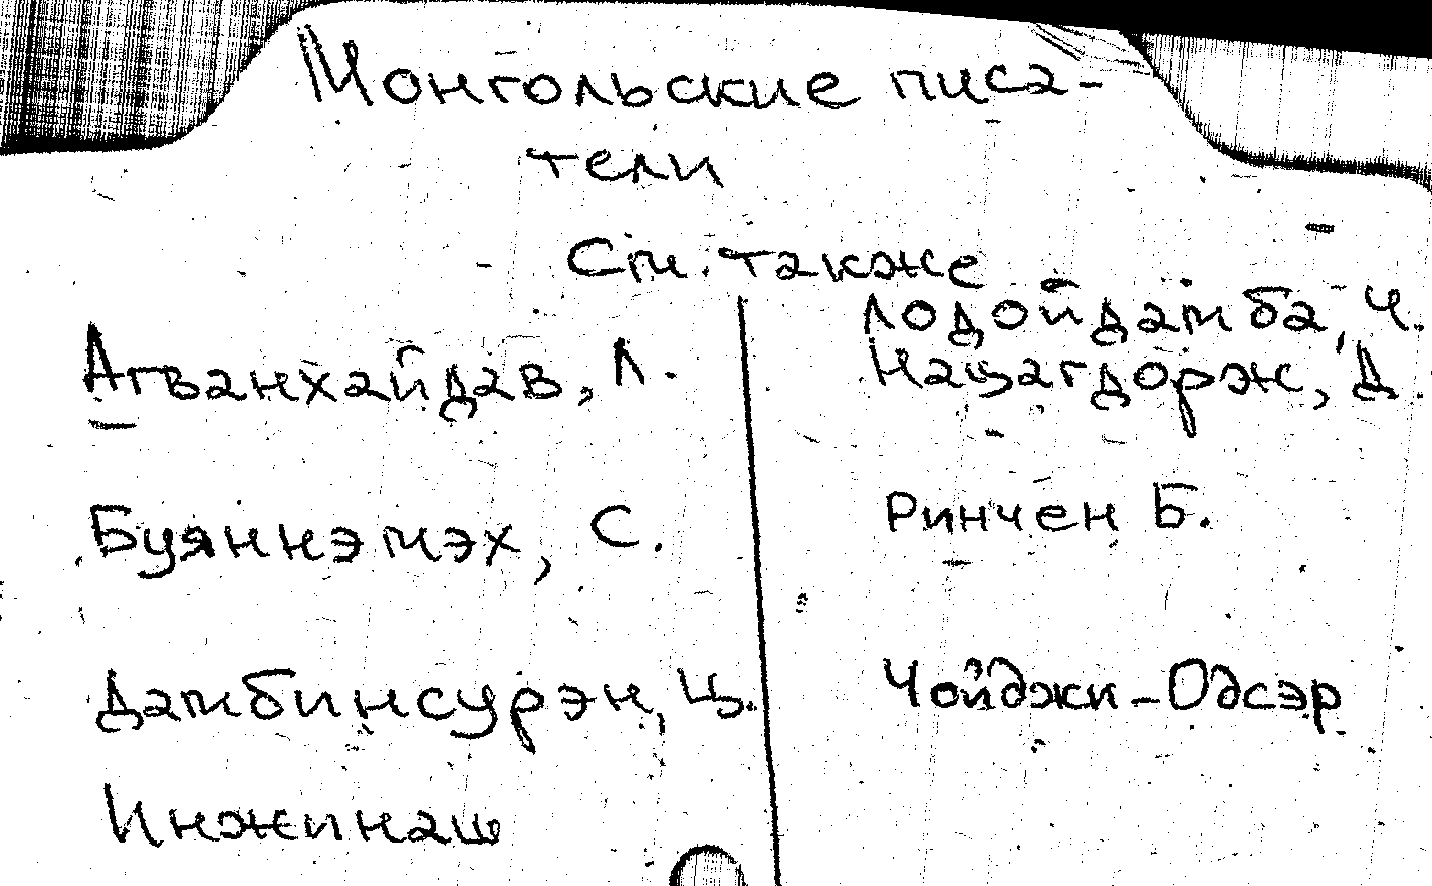 Монгольские писа-
тели
См. также
Агванхайдав, Л.
Буяннэмэх, С.
Дамбинсурэн, Ц.
Инжинаш
Лодойдамба, Ч.
Нацагдорж, Д.
Ринчен Б.
Чойджи-Одсэр